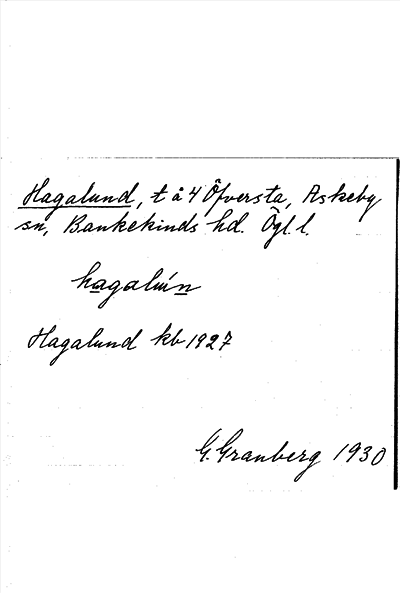 Hagalund, t å 4 Öfversta, Askeby
sn, Bankekinds hd. Ögl. l.
hagalún
Hagalund kb 1927
G. Granberg 1930